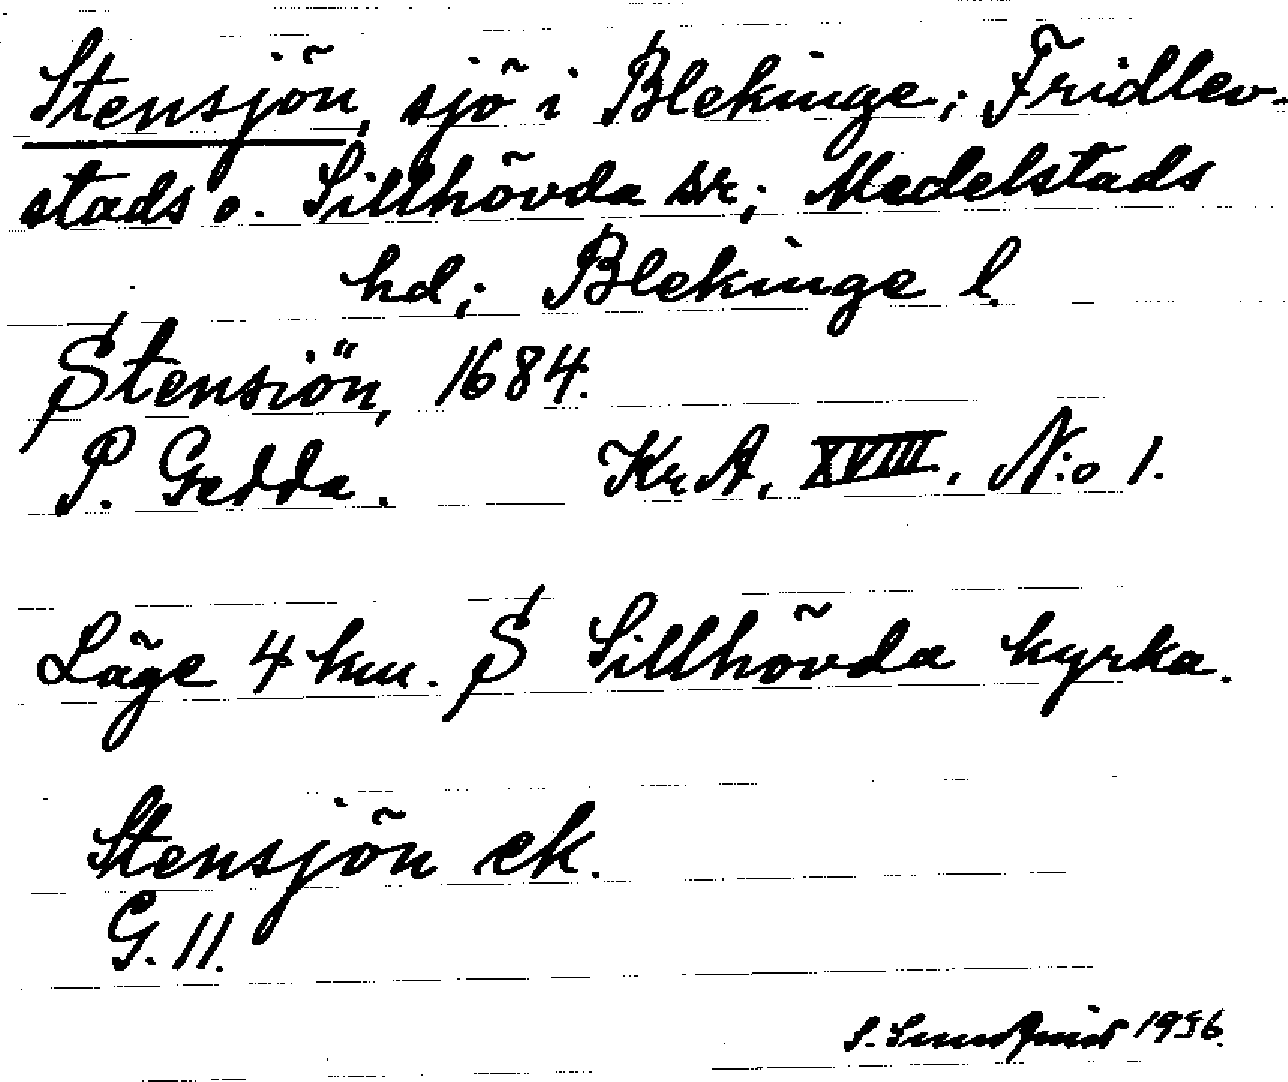 Stensjön, sjö i Blekinge; Fridlev-
stads o. Sillhövda sr; Medelstads
hd; Blekinge l.
Stensiön, 1684.
P. Gedda. Kr. A. XVIII. N:o 1.
Läge 4 km. S Sillhövda kyrka.
Stensjön ek.
G. 11.
S. Sundquist 1956.